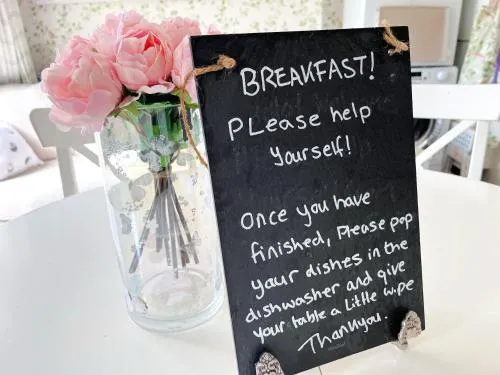 BREAKFAST!
Please help
yourself!
Once you have
finished, Please pop
your dishes in the
dishwasher and give
your table a little wipe
Thankyou.